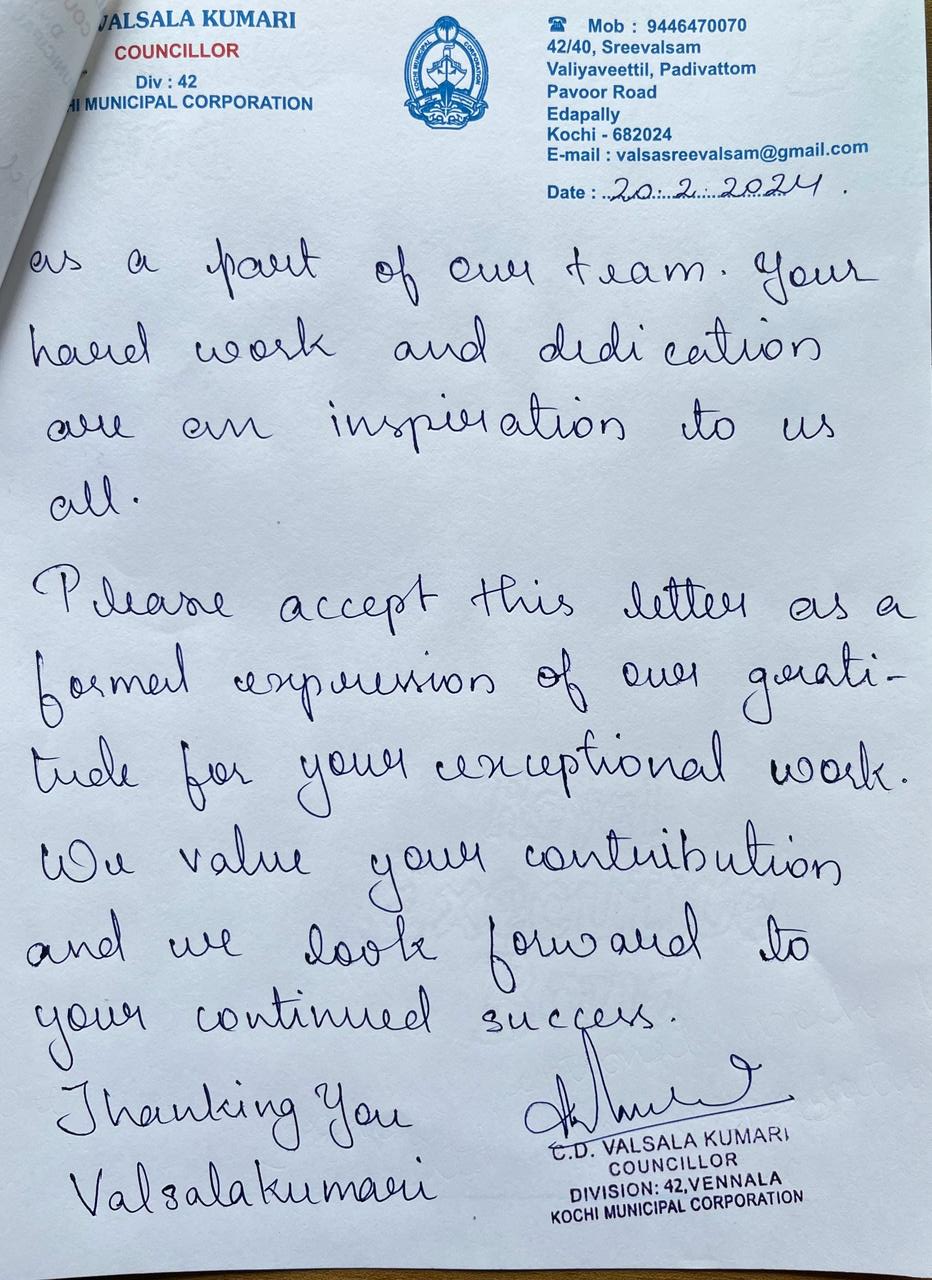 VALSALA KUMARI
COUNCILLOR
Div : 42
HI MUNICIPAL CORPORATION
KOCHI MUNICIPAL CORPORATION
Mob : 9446470070
42/40, Sreevalsam
Valiyaveettil, Padivattom
Pavoor Road
Edapally
Kochi - 682024
E-mail : valsasreevalsam@gmail.com
Date : 20.2.2024.
as a part of our team. Your
hard work and dedication
are an inspiration to us
all.
Please accept this letter as a
formal expression of our grati-
tude for your exceptional work.
We value your contribution
and we look forward to
your continued success.
Thanking You
Valsalakumari
C.D. VALSALA KUMARI
COUNCILLOR
DIVISION: 42,VENNALA
KOCHI MUNICIPAL CORPORATION